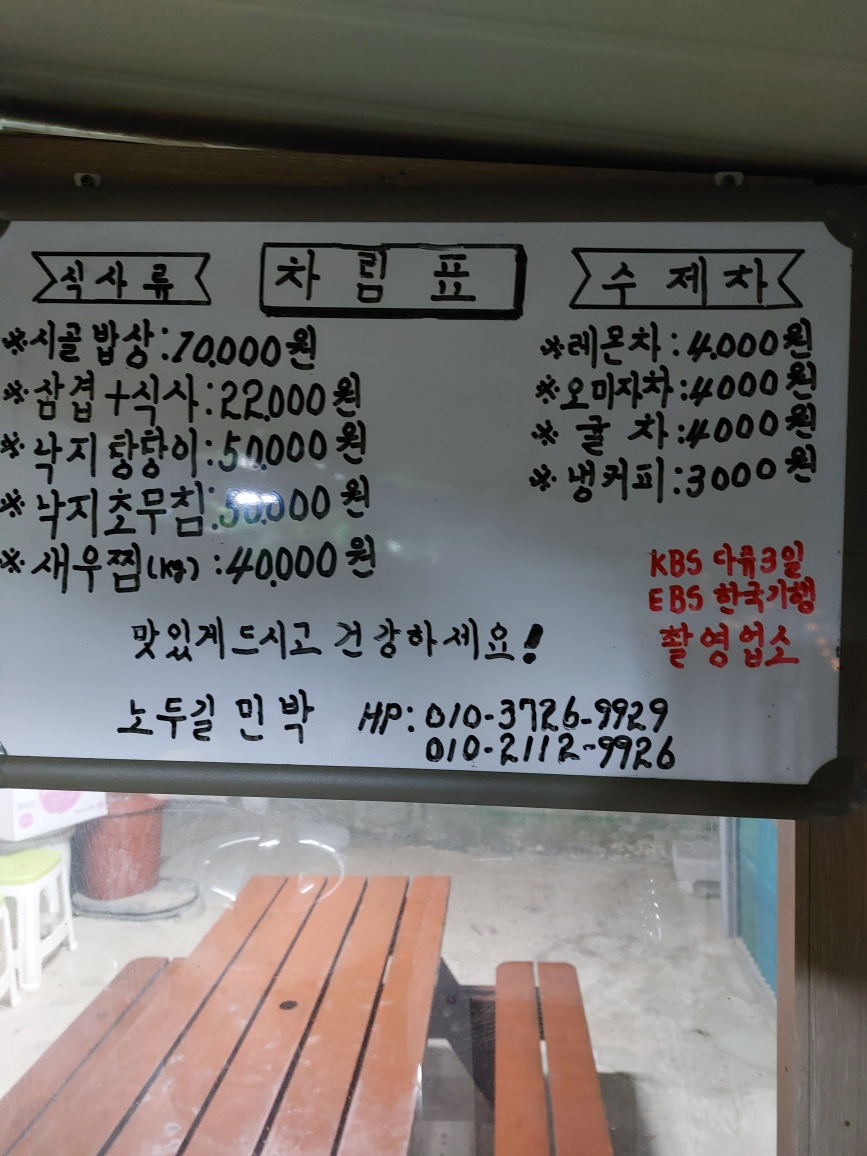 차림표
식사류
※시골밥상:10,000원
※삼겹+식사:22,000원
※낙지탕탕이:50,000원
※낙지초무침:50,000원
※새우찜(kg):40,000원
수제차
※레몬차:4,000원
※오미자차:4000원
※귤차:4000원
※냉커피:3000원
KBS 다큐3일
EBS 한국기행
촬영업소
맛있게드시고 건강하세요!
노두길 민박 HP: 010-3726-9929
010-2112-9926